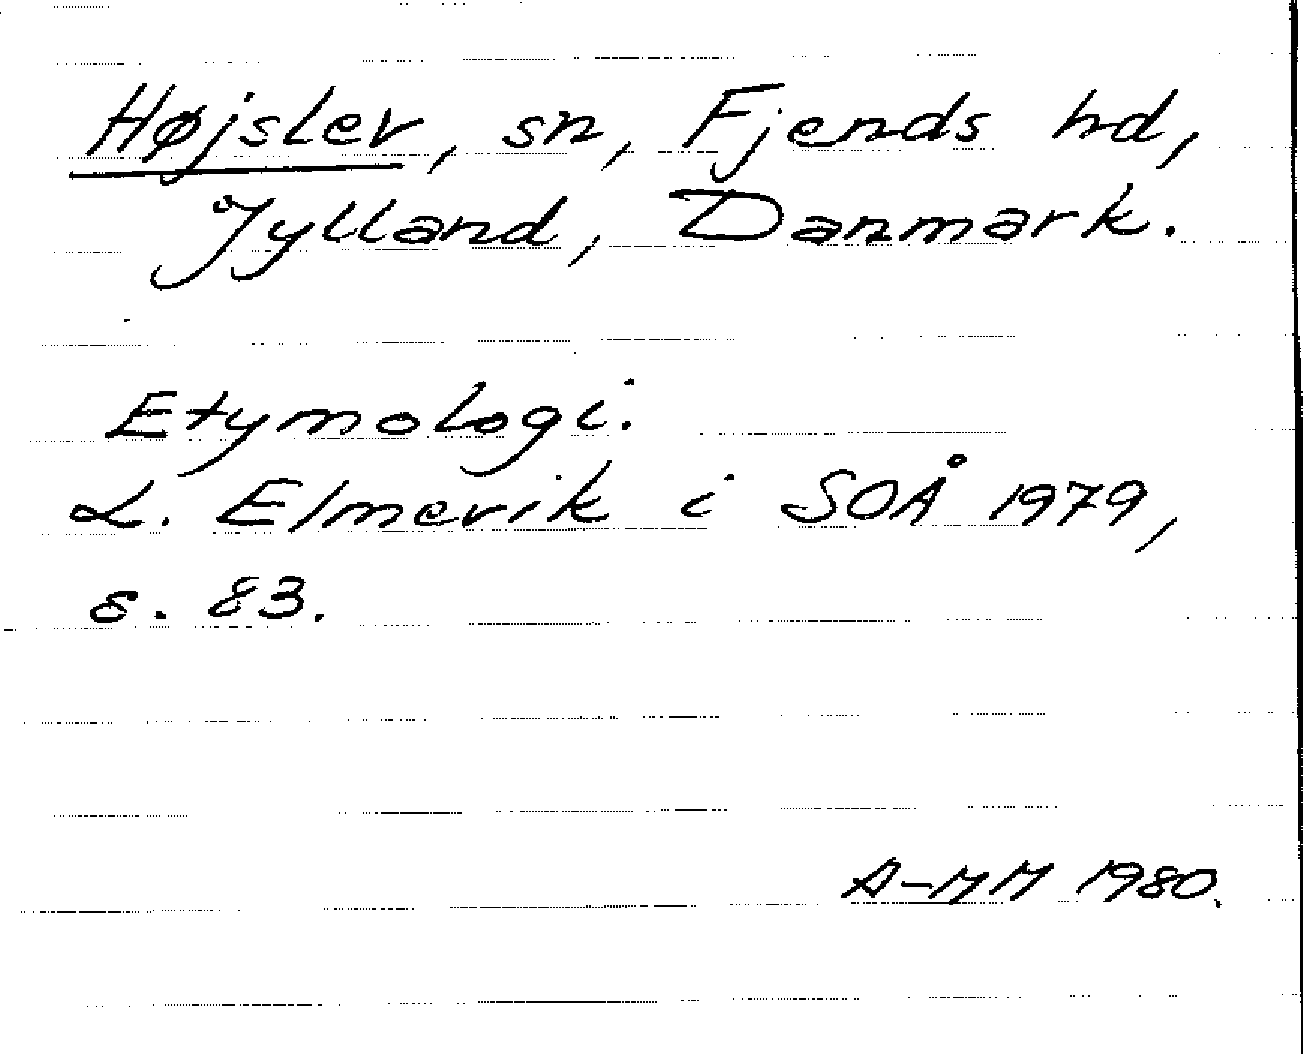 Højslev, sn, Fjends hd,
Jylland, Danmark.
Etymologi.
L. Elmevik i SOÅ 1979,
s. 83.
A-MM 1980.